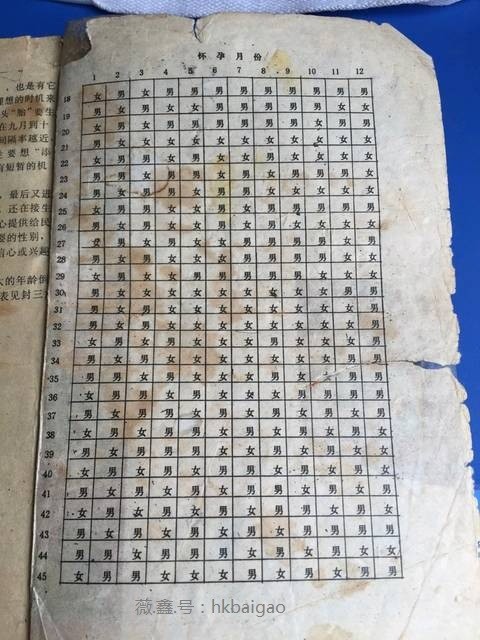 也是有它
理想的时机来
头“胎”要生
在九月到十
间隔率越近,
要想“添
有短暂的机
最后又进
还在接生
心提供给民
要的性别,
信心或兴趣
大的年龄倒
表见封三)
怀孕月份
1 2 3 4 5 6 7 8 9 10 11 12
18 女 男 女 男 男 男 男 男 男 男 男 男
19 男 女 男 女 女 男 男 男 男 男 女 女
20 女 男 女 男 男 男 男 男 男 女 男 男
21 男 女 女 女 女 女 女 女 女 女 女 女
22 女 男 男 女 男 女 女 男 女 女 女 女
23 男 男 女 男 男 女 男 女 男 男 男 女
24 男 女 男 男 女 男 男 女 女 女 女 女
25 女 男 男 女 女 男 女 男 男 男 男 男
26 男 女 男 女 女 男 女 男 女 女 女 女
27 女 男 女 男 女 女 男 男 男 男 女 男
28 男 女 男 女 女 女 男 男 男 男 女 女
29 女 男 女 女 男 男 男 男 男 女 女 女
30 男 女 女 女 女 女 女 女 女 女 男 男
31 男 女 男 女 女 女 女 女 女 女 女 男
32 男 女 男 女 女 女 女 女 女 女 女 男
33 女 男 女 男 女 女 女 男 女 女 女 男
34 男 女 男 女 女 女 女 女 女 女 男 男
35 男 男 女 男 女 女 女 男 女 女 男 男
36 女 男 男 女 男 女 女 女 男 男 男 男
37 男 女 男 男 女 男 女 男 女 男 女 男
38 女 男 女 男 男 女 男 女 男 女 男 女
39 男 女 男 男 男 女 女 男 女 男 女 女
40 女 男 女 男 女 男 男 女 男 女 男 女
41 男 女 男 女 男 女 男 男 女 男 女 男
42 女 男 女 男 女 男 女 男 男 女 男 女
43 男 女 男 女 男 女 男 女 男 男 男 男
44 男 男 女 男 男 男 女 男 女 男 女 女
45 女 男 男 女 女 女 男 女 男 女 男 男
薇.鑫.号:hkbaigao